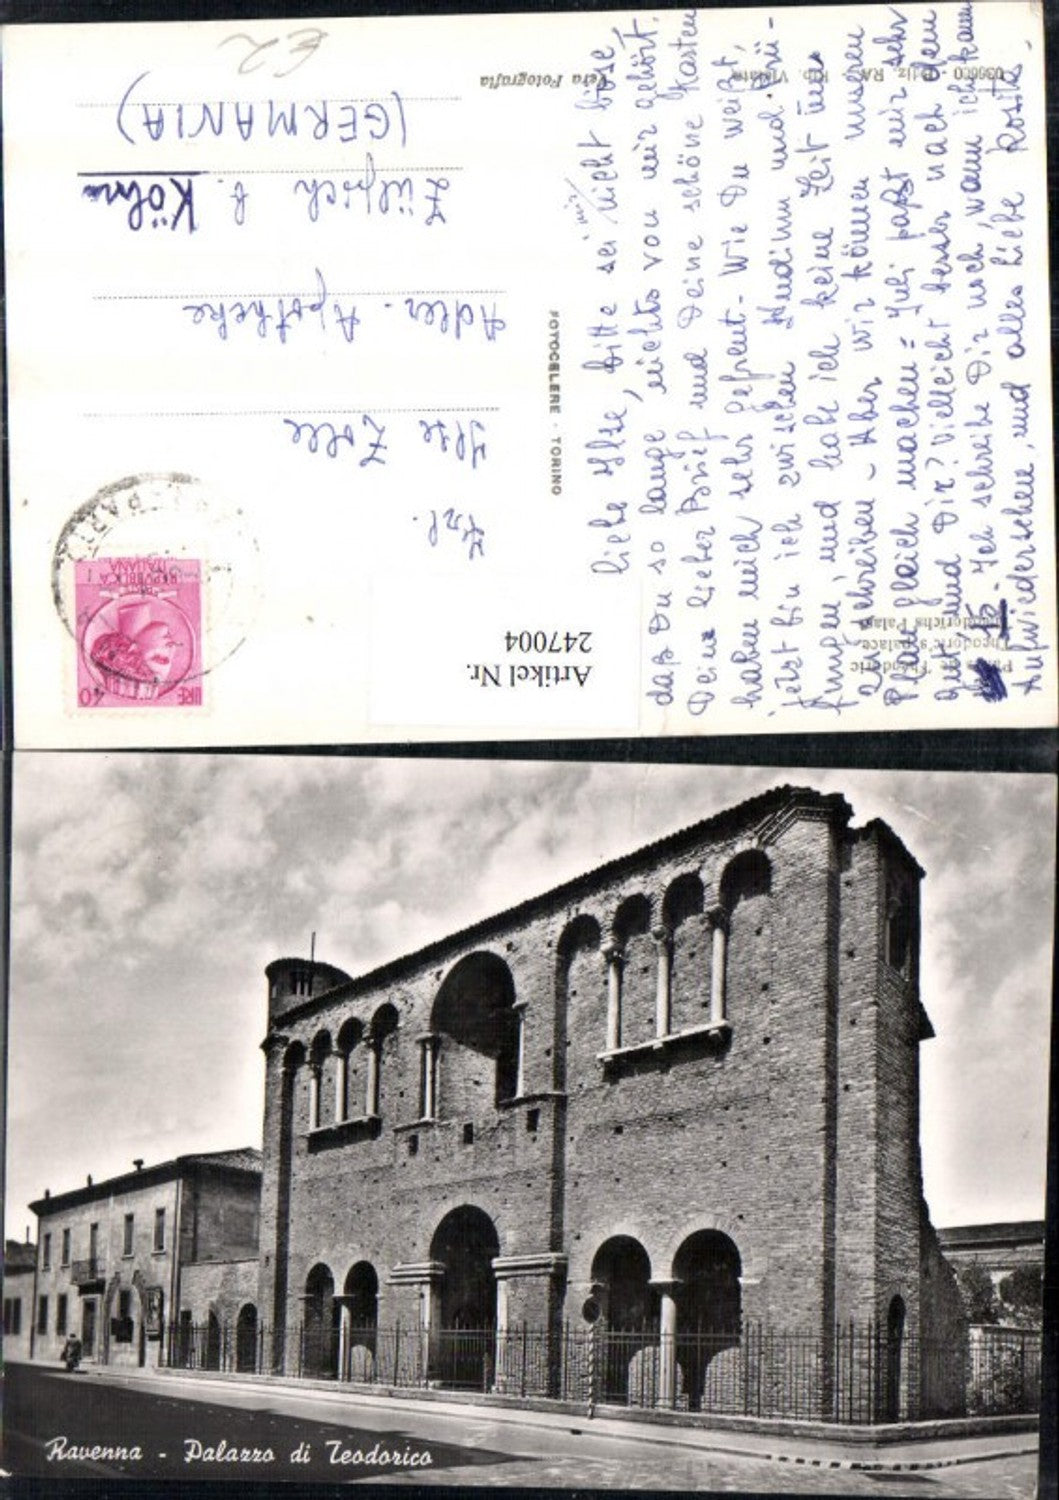 €2
Vera Fotografia
FOTOCELERE - TORINO
Palais de Théodoric
Theodoric's palace
Theoderichs Palast
Artikel Nr.
247004
REPVBBLICA
ITALIANA
LIRE 40
Frl.
Ilse Zoll
Adler-Apotheke
Zülpich b. Köln
(GERMANIA)
Liebe Ilse, bitte sei mir nicht böse,
daß Du so lange nichts von mir gehört.
Dein lieber Brief und Deine schöne Karten
haben mich sehr gefreut - Wie Du weißt,
jetzt bin ich zwischen Studium und Prü-
fungen, und habe ich keine Zeit um
zu schreiben - Aber wir können unseren
Plan gleich machen = Juli paßt mir sehr
gut, und Dir? Vielleicht besser nach dem
15 - Ich schreibe Dir noch, wann ich kann
Aufwiedersehen, und alles Liebe
Ravenna - Palazzo di Teodorico